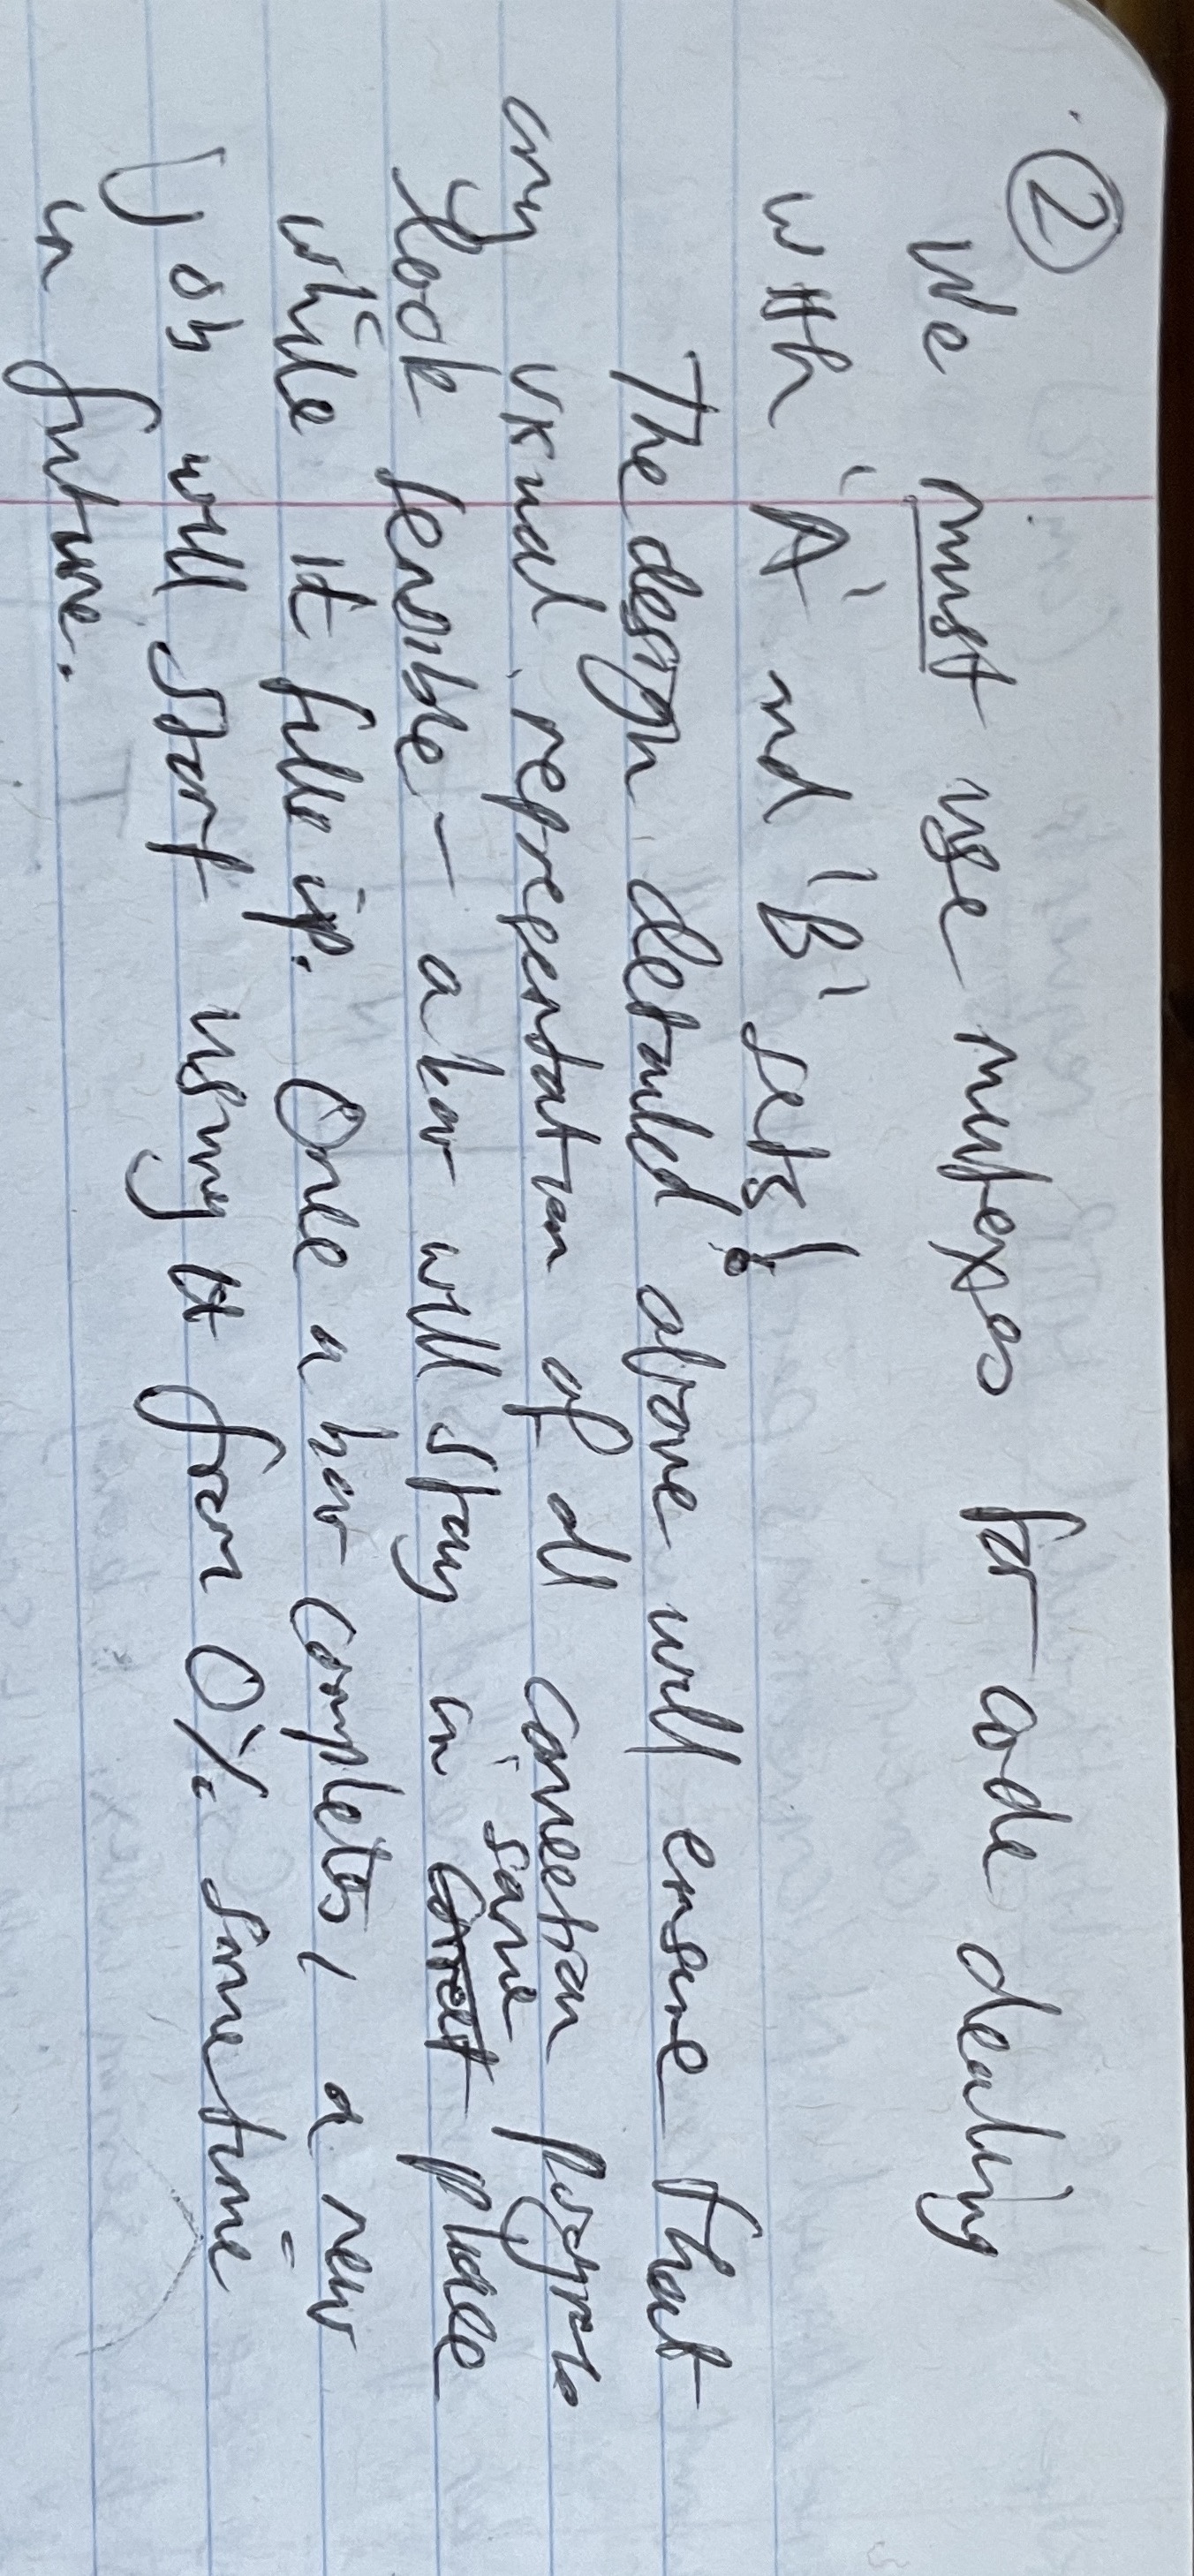 ②
We must use mutexes for code dealing
with 'A' and 'B' sets!
The design detailed above will ensure that
any visual representation of all conection progress
look sensible - a bar will stay in same place
while it fills up. Once a bar completes, a new
job will start using it from 0% sometime
in future.